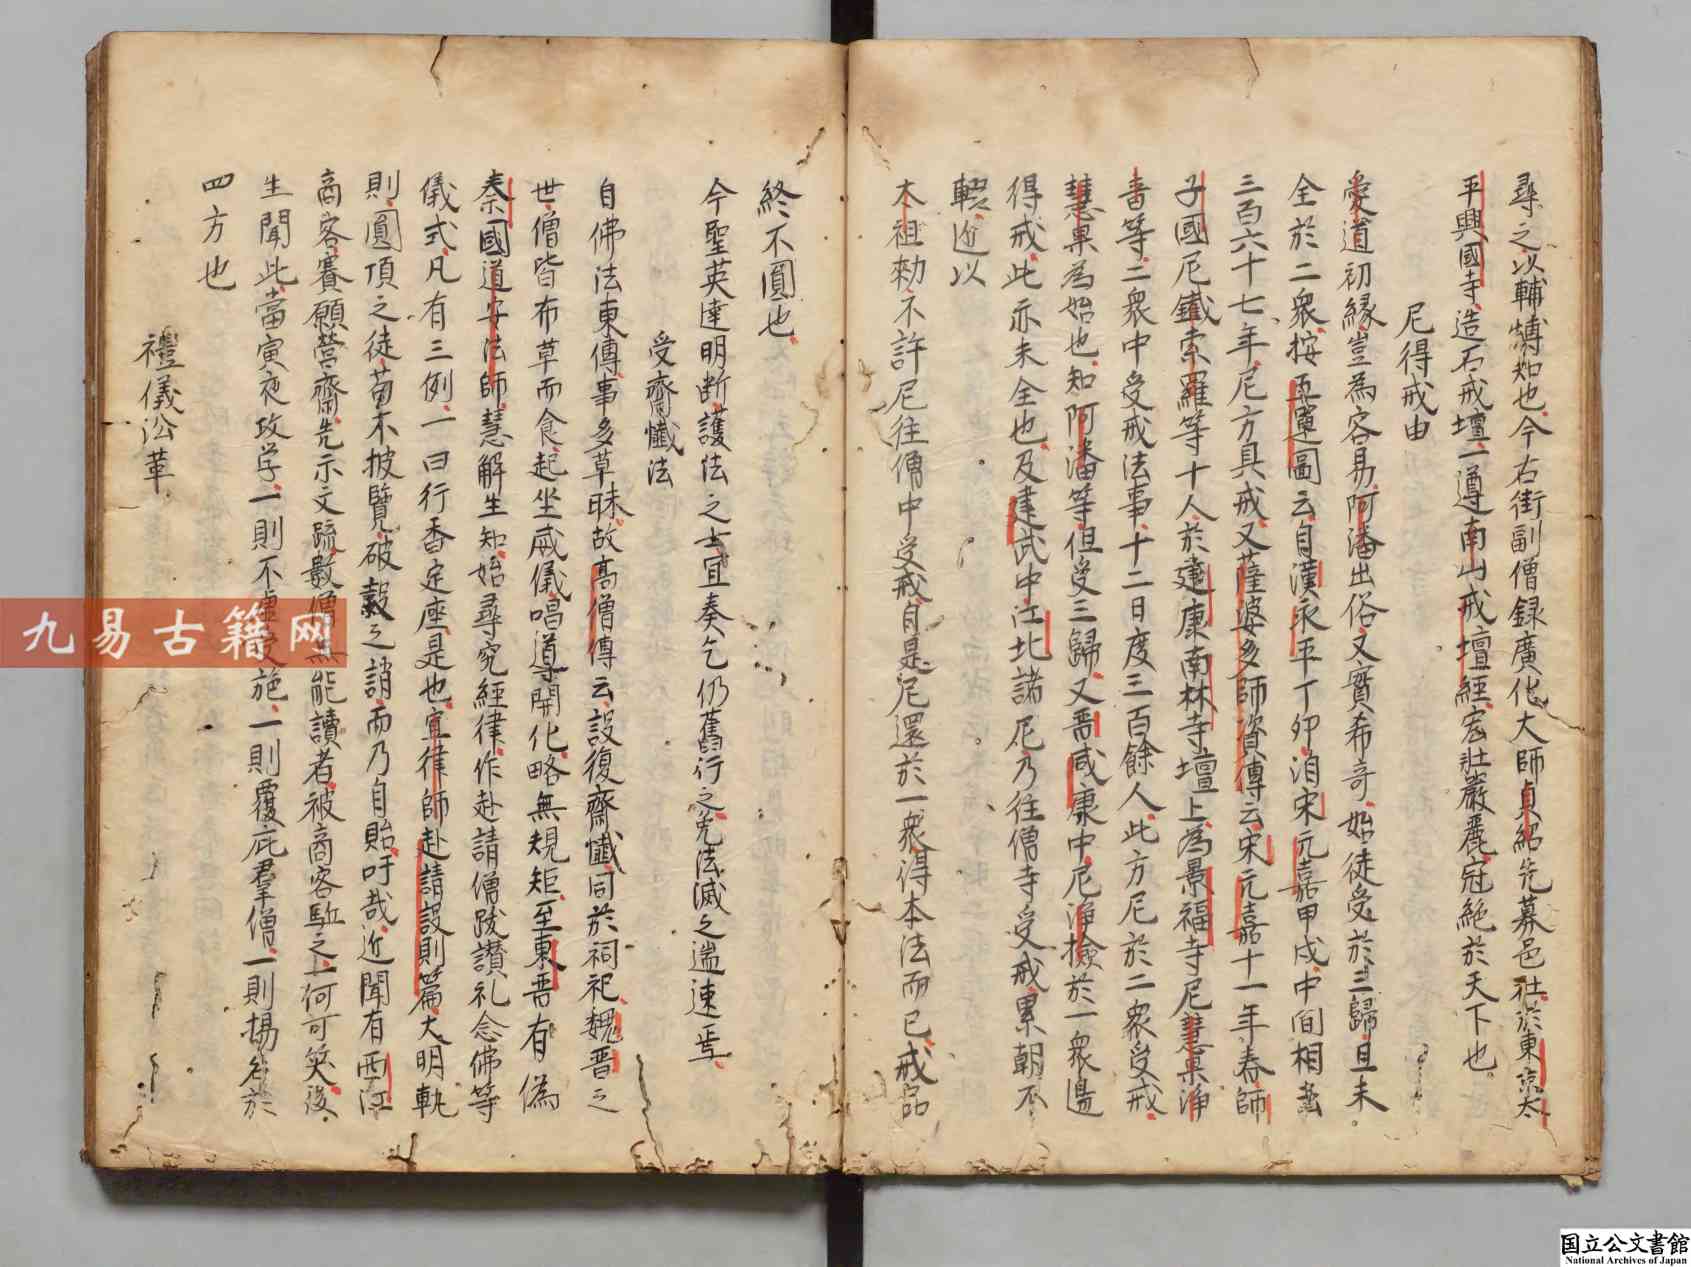 尋之以輔愽知也今右街副僧録廣化大師貞紹先募邑社於東京太
平興國寺造石戒壇一遵南山戒壇經宏壯嚴麗冠絶於天下也
尼得戒由
愛道初緣豈為容易阿潘出俗又實希奇始徒受於三歸且未
全於二衆按五運圖云自漢永平丁卯洎宋元嘉甲戌中間相去
三百六十七年尼方具戒又薩婆多師資傳云宋元嘉十一年春師
子國尼鐵索羅等十人於建康南林寺壇上為景福寺尼慧果浄
音等二衆中受戒法事十二日度三百餘人此方尼於二衆受戒
慧果為始也知阿潘等但受三歸又晋咸康中尼浄撿於一衆邉
得戒此亦未全也及建武中江北諸尼乃往僧寺受戒累朝不
輟近以
太祖勅不許尼往僧中受戒自是尼還於一衆得本法而已戒品
終不圓也
今聖英達明断護法之士宜奏乞仍舊行之免法滅之遄速焉
受齋懺法
自佛法東傳事多草昧故高僧傳云設復齋懺同於祠祀魏晋之
世僧皆布草而食起坐威儀唱導開化略無規矩至東晋有偽
秦國道安法師慧解生知始尋究經律作赴請僧跋讃礼念佛等
儀式凡有三例一曰行香定座是也宣律師赴請設則篇大明軌
則圓頂之徒苟不披覽破穀之誚而乃自貽吁哉近聞有西江
商客賽願營齋先示文疏數僧無能讀者被商客駈之一何可笑後
生聞此當寅夜攻学一則不虚受施一則覆庇羣僧一則揚名於
四方也
禮儀沿革
九易古籍网
国立公文書館
National Archives of Japan